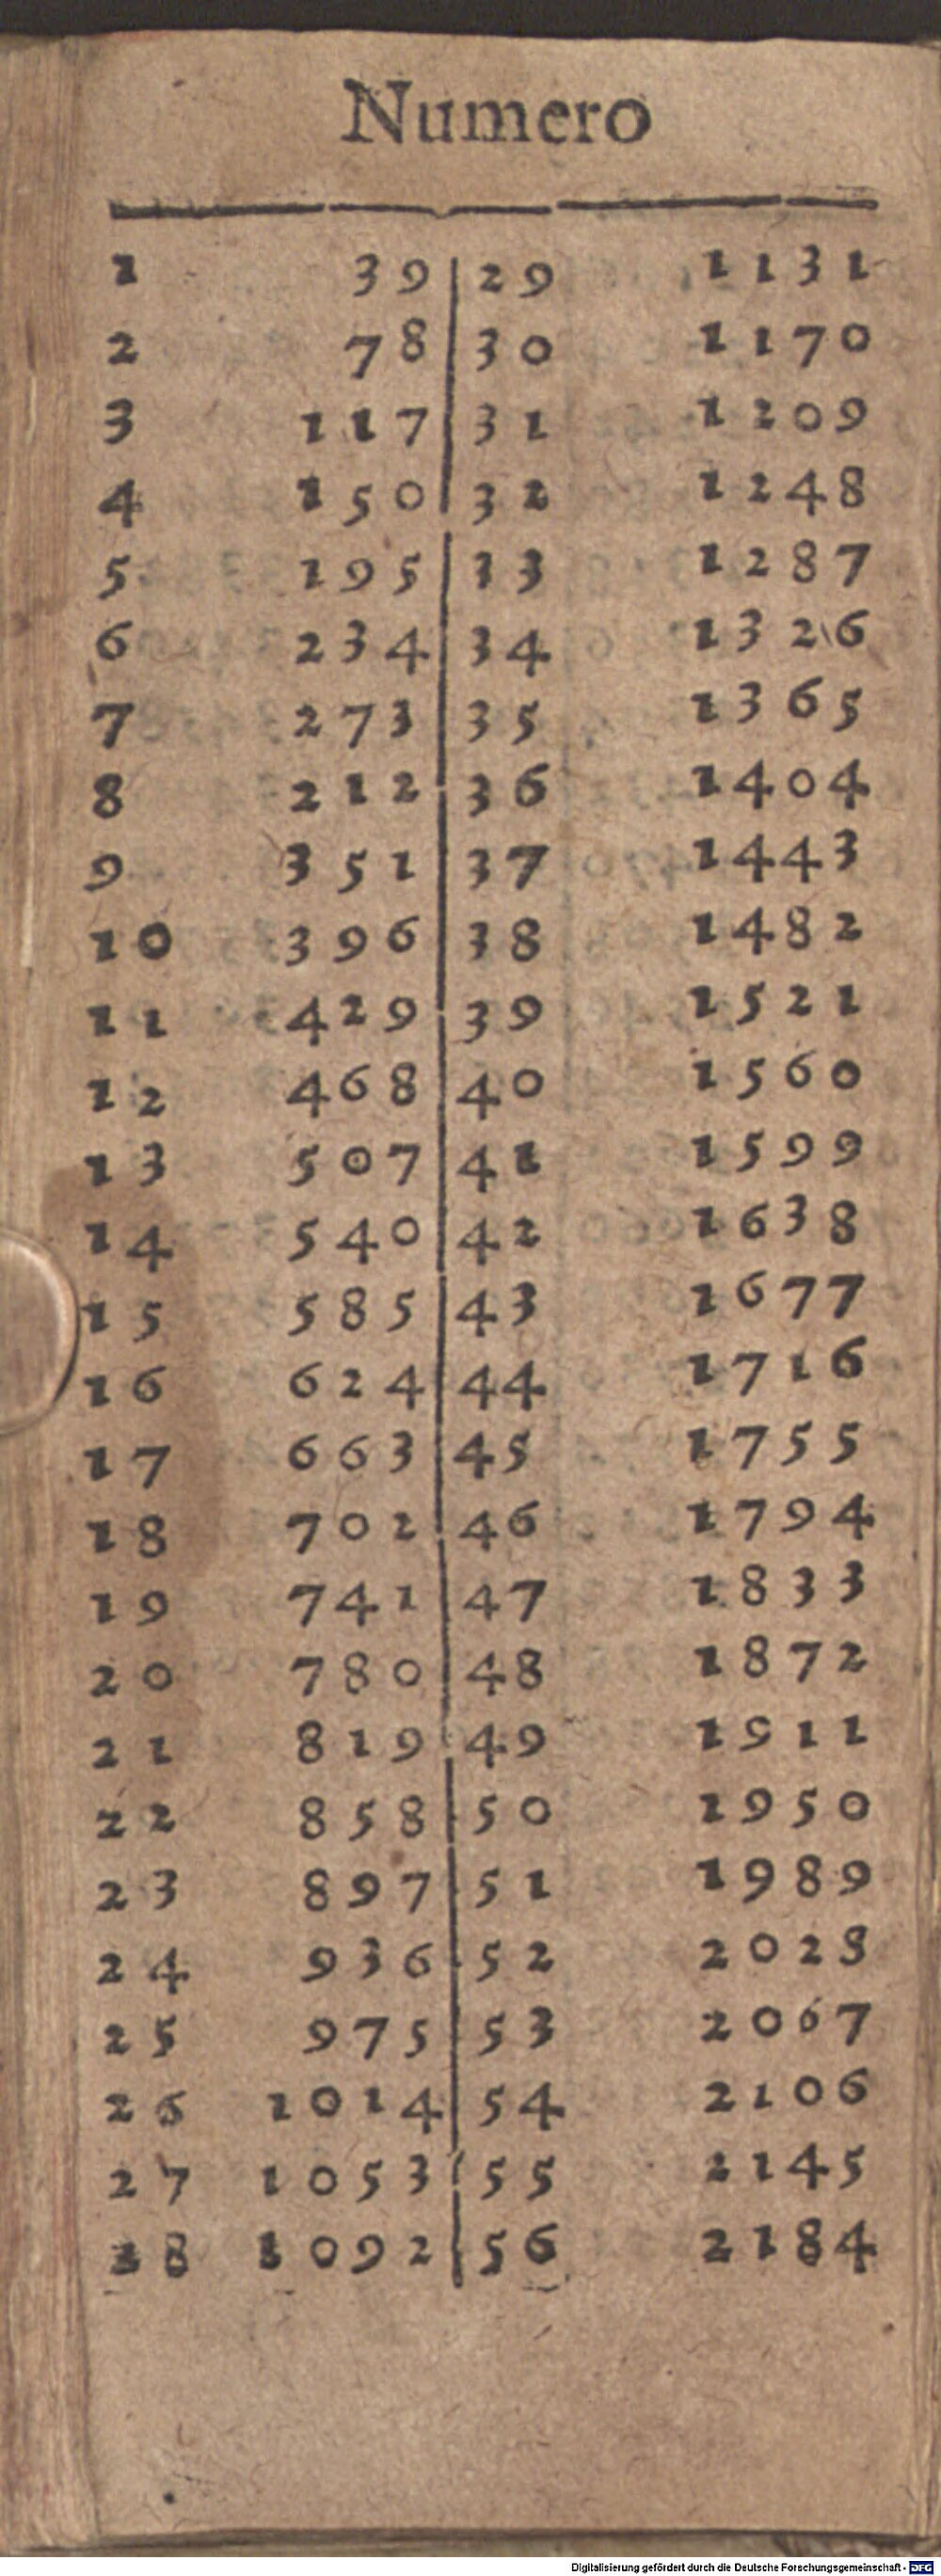 Numero
1 39 29 1131
2 78 30 1170
3 117 31 1209
4 150 32 1248
5 195 33 1287
6 234 34 1326
7 273 35 1365
8 212 36 1404
9 351 37 1443
10 396 38 1482
11 429 39 1521
12 468 40 1560
13 507 41 1599
14 540 42 1638
15 585 43 1677
16 624 44 1716
17 663 45 1755
18 702 46 1794
19 741 47 1833
20 780 48 1872
21 819 49 1911
22 858 50 1950
23 897 51 1989
24 936 52 2028
25 975 53 2067
26 1014 54 2106
27 1053 55 2145
28 1092 56 2184
Digitalisierung gefördert durch die Deutsche Forschungsgemeinschaft - DFG